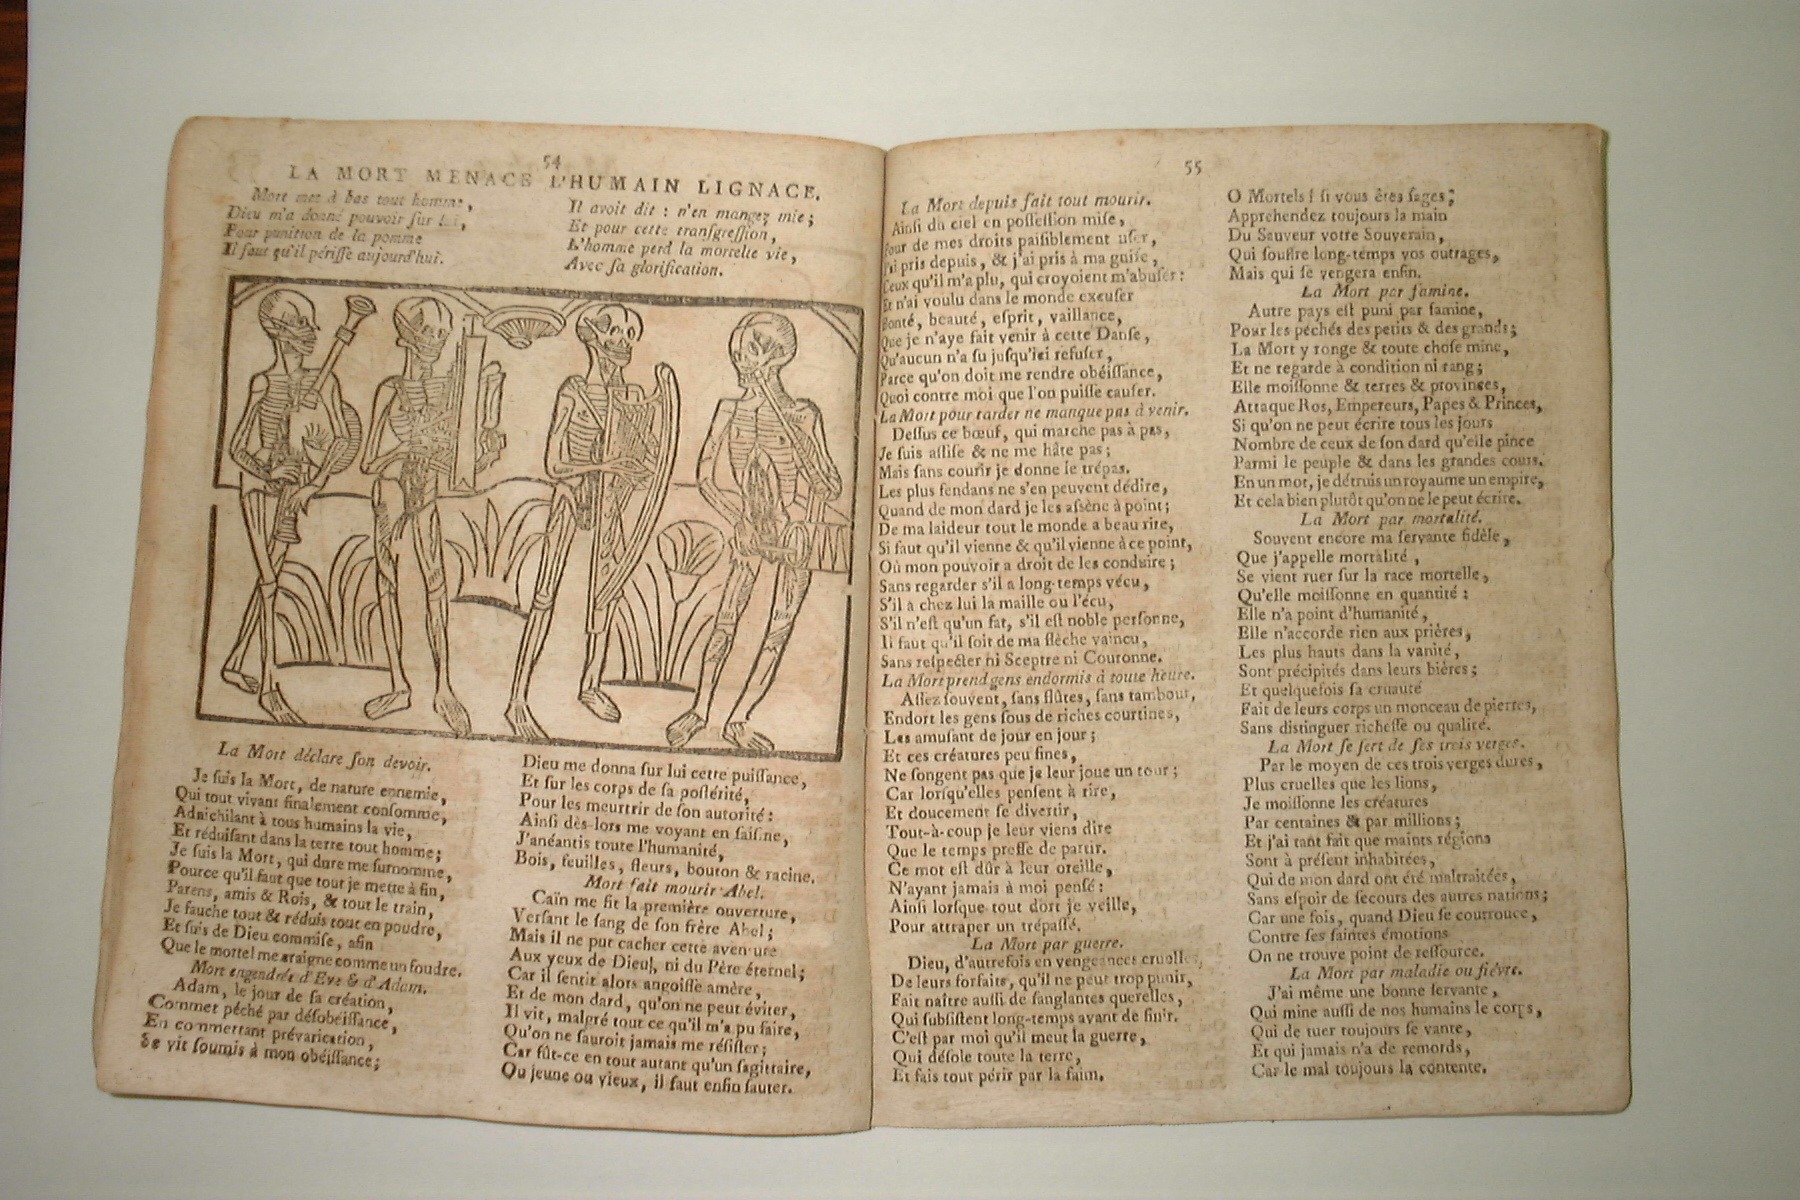 54
LA MORT MENACE L'HUMAIN LIGNAGE.
Mort met à bas tout homme,
Dieu m'a donné pouvoir sur lui,
Pour punition de la pomme
Il faut qu'il périsse aujourd'hui.
Il avoit dit : n'en mangez mie ;
Et pour cette transgression,
L'homme perd la mortelle vie,
Avec sa glorification.
La Mort déclare son devoir.
Je suis la Mort, de nature ennemie,
Qui tout vivant finalement consomme,
Adnichilant à tous humains la vie,
Et réduisant dans la terre tout homme ;
Je suis la Mort, qui dure me surnomme,
Pource qu'il faut que tout je mette à fin,
Parens, amis & Rois, & tout le train,
Je fauche tout & réduis tout en poudre,
Et suis de Dieu commise, afin
Que le mortel me craigne comme un foudre.
Mort engendrée d'Eve & d'Adam.
Adam, le jour de sa création,
Commet péché par désobéissance,
En commettant prévarication,
Se vit soumis à mon obéissance ;
Dieu me donna sur lui cette puissance,
Et sur les corps de sa postérité,
Pour les meurtrir de son autorité :
Ainsi dès-lors me voyant en saisine,
J'anéantis toute l'humanité,
Bois, feuilles, fleurs, bouton & racine.
Mort fait mourir Abel.
Caïn me fit la première ouverture,
Versant le sang de son frère Abel ;
Mais il ne put cacher cette aventure
Aux yeux de Dieu, ni du Père éternel ;
Car il sentit alors angoisse amère,
Et de mon dard, qu'on ne peut éviter,
Il vit, malgré tout ce qu'il m'a pu faire,
Qu'on ne sauroit jamais me résister ;
Car fût-ce en tout autant qu'un sagittaire,
Ou jeune ou vieux, il faut enfin sauter.
55
La Mort depuis fait tout mourir.
Ainsi du ciel en possession mise,
Pour de mes droits paisiblement user,
J'ai pris depuis, & j'ai pris à ma guise,
Ceux qu'il m'a plu, qui croyoient m'abuser :
Et n'ai voulu dans le monde excuser
Bonté, beauté, esprit, vaillance,
Que je n'aye fait venir à cette Danse,
Qu'aucun n'a su jusqu'ici refuser,
Parce qu'on doit me rendre obéissance,
Quoi contre moi que l'on puisse causer.
La Mort pour tarder ne manque pas à venir.
Dessus ce bœuf, qui marche pas à pas,
Je suis assise & ne me hâte pas ;
Mais sans courir je donne le trépas.
Les plus fendans ne s'en peuvent dédire,
Quand de mon dard je les assène à point ;
De ma laideur tout le monde a beau rire,
Si faut qu'il vienne & qu'il vienne à ce point,
Où mon pouvoir a droit de les conduire ;
Sans regarder s'il a long-temps vécu,
S'il a chez lui la maille ou l'écu,
S'il n'est qu'un fat, s'il est noble personne,
Il faut qu'il soit de ma flèche vaincu,
Sans respecter ni Sceptre ni Couronne.
La Mort prend gens endormis à toute heure.
Assez souvent, sans flûtes, sans tambour,
Endort les gens sous de riches courtines,
Les amusant de jour en jour ;
Et ces créatures peu fines,
Ne songent pas que je leur joue un tour ;
Car lorsqu'elles pensent à rire,
Et doucement se divertir,
Tout-à-coup je leur viens dire
Que le temps presse de partir.
Ce mot est dûr à leur oreille,
N'ayant jamais à moi pensé :
Ainsi lorsque tout dort je veille,
Pour attraper un trépassé.
La Mort par guerre.
Dieu, d'autrefois en vengeances cruelles,
De leurs forfaits, qu'il ne peut trop punir,
Fait naître aussi de sanglantes querelles,
Qui subsistent long-temps avant de finir.
C'est par moi qu'il meut la guerre,
Qui désole toute la terre,
Et fais tout périr par la faim.
O Mortels ! si vous êtes sages ;
Apprehendez toujours la main
Du Sauveur votre Souverain,
Qui souffre long-temps vos outrages,
Mais qui se vengera enfin.
La Mort par famine.
Autre pays est puni par famine,
Pour les péchés des petits & des grands ;
La Mort y ronge & toute chose mine,
Et ne regarde à condition ni rang ;
Elle moissonne & terres & provinces,
Attaque Ros, Empereurs, Papes & Princes,
Si qu'on ne peut écrire tous les jours
Nombre de ceux de son dard qu'elle pince
Parmi le peuple & dans les grandes cours.
En un mot, je détruis un royaume un empire,
Et cela bien plutôt qu'on ne le peut écrire.
La Mort par mortalité.
Souvent encore ma servante fidèle,
Que j'appelle mortalité,
Se vient ruer sur la race mortelle,
Qu'elle moissonne en quantité :
Elle n'a point d'humanité,
Elle n'accorde rien aux prières,
Les plus hauts dans la vanité,
Sont précipités dans leurs bières ;
Et quelquefois sa cruauté
Fait de leurs corps un monceau de pierres,
Sans distinguer richesse ou qualité.
La Mort se sert de ses trois verges.
Par le moyen de ces trois verges dures,
Plus cruelles que les lions,
Je moissonne les créatures
Par centaines & par millions ;
Et j'ai tant fait que maints régions
Sont à présent inhabitées,
Qui de mon dard ont été maltraitées,
Sans espoir de secours des autres nations ;
Car une fois, quand Dieu se courrouce,
Contre ses saintes émotions
On ne trouve point de ressource.
La Mort par maladie ou fièvre.
J'ai même une bonne servante,
Qui mine aussi de nos humains le corps,
Qui de tuer toujours se vante,
Et qui jamais n'a de remords,
Car le mal toujours la contente.